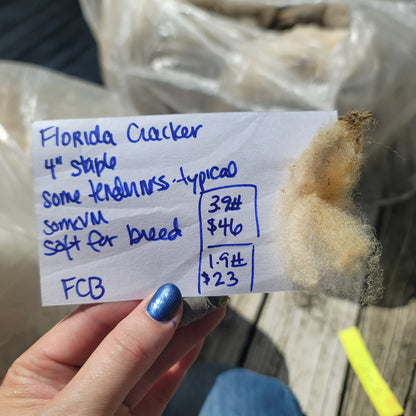 Florida Cracker
4" staple
some tenderness - typical
some VM
soft for breed
FCB
3.9#
$46
1.9#
$23